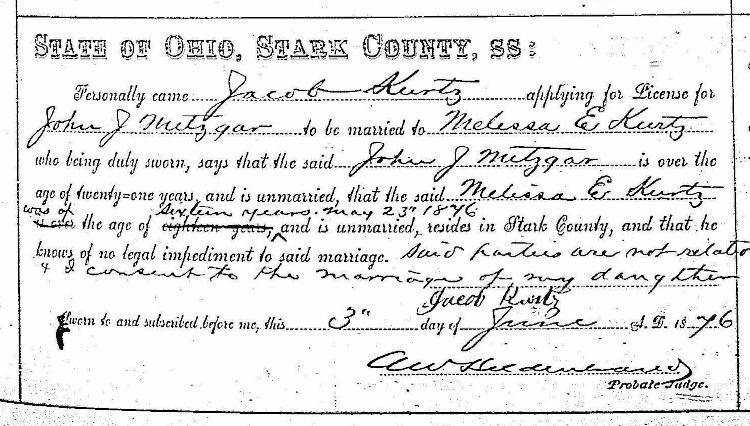 STATE OF OHIO, STARK COUNTY, SS:
Personally came Jacob Kurtz applying for License for
John J Metzgar to be married to Melissa E. Kurtz
who being duly sworn, says that the said John J Metzgar is over the
age of twenty-one years, and is unmarried, that the said Melissa E. Kurtz
was of sixteen years. May 23" 1876
is over the age of eighteen years, and is unmarried, resides in Stark County, and that he
knows of no legal impediment to said marriage. Said parties are not relatio
& I consent to the marriage of my daughter
Jacob Kurtz
Sworn to and subscribed before me, this 3" day of June A.D. 1876
Probate Judge.